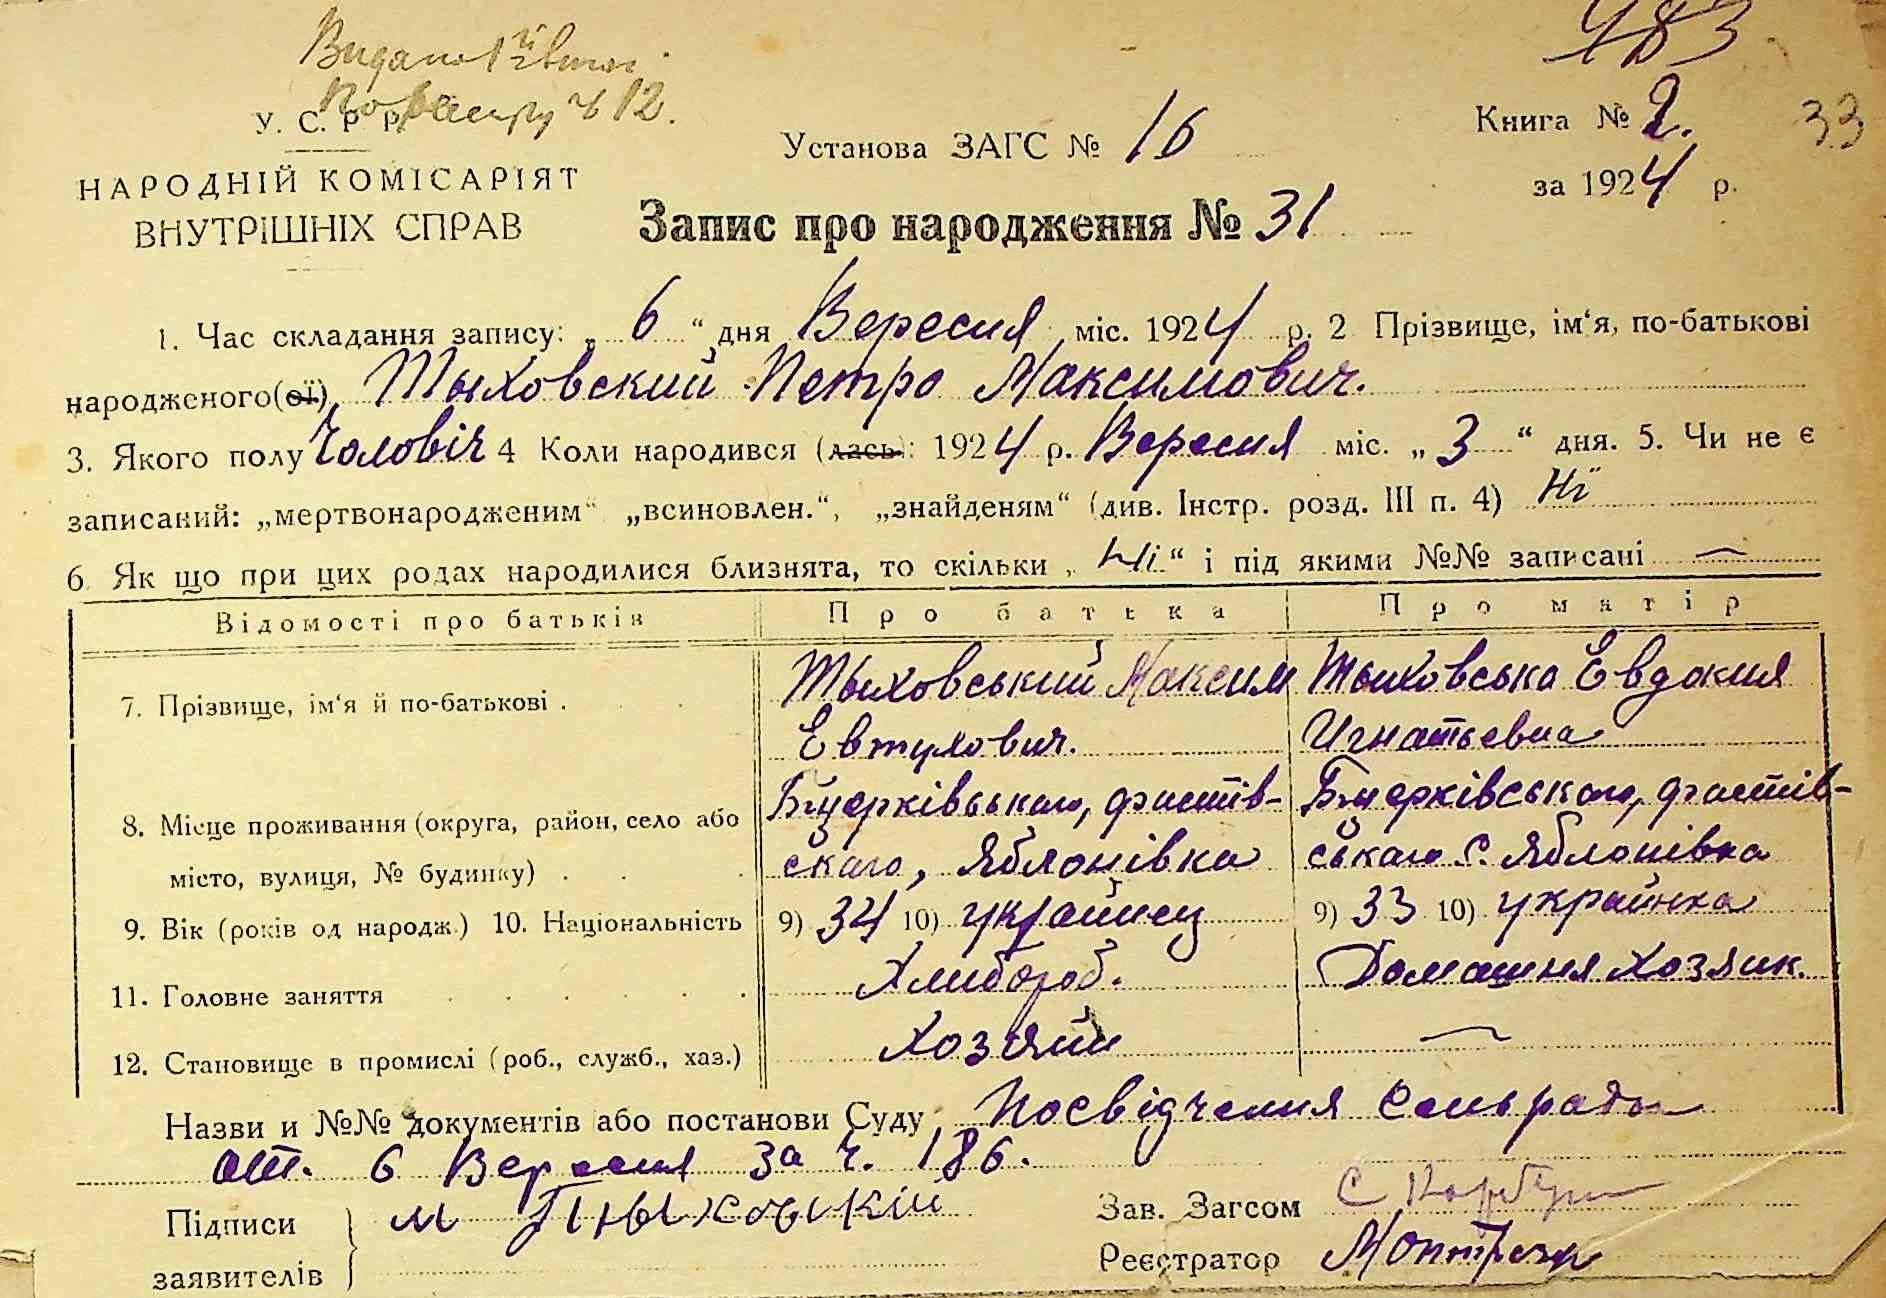 483
У. С. Р Р.
Установа ЗАГС № 16
Книга № 2.
33
за 1924 р.
НАРОДНІЙ КОМІСАРІЯТ
ВНУТРІШНІХ СПРАВ
Запис про народження № 31
1. Час складання запису: „ 6 “ дня Вересня міс. 1924 р. 2 Прізвище, ім‘я, по-батькові
народженого(ої) Тыховский Петро Максимович.
3. Якого полу Чоловіч 4 Коли народився (лась): 1924 р. Вересня міс. „ 3 “ дня. 5. Чи не є
записаний: „мертвонародженим“ „всиновлен.“, „знайденям“ (див. Інстр. розд. III п. 4) Ні
6. Як що при цих родах народилися близнята, то скільки „ Ні “ і під якими №№ записані —
Відомості про батьків Про батька Про матір
7. Прізвище, ім‘я й по-батькові . Тыховський Максим Тыховська Евдокия
Евтухович. Игнатьевна
Бцерківського, фастів- Бцерківського, фастів-
8. Місце проживання (округа, район, село або
ського, Яблонівка ського с. Яблонівка
місто, вулиця, № будинку)
9. Вік (років од народж.) 10. Національність 9) 34 10) украйнец 9) 33 10) украйнка
11. Головне заняття Хлибороб. Домашня Хозяик.
12. Становище в промислі (роб., служб., хаз.) Хозяйн —
Назви и №№ документів або постанови Суду Посвідчення Сельради
от. 6 Вересня за ч. 186.
Підписи м Тыховький
заявителів
Зав. Загсом
Реєстратор